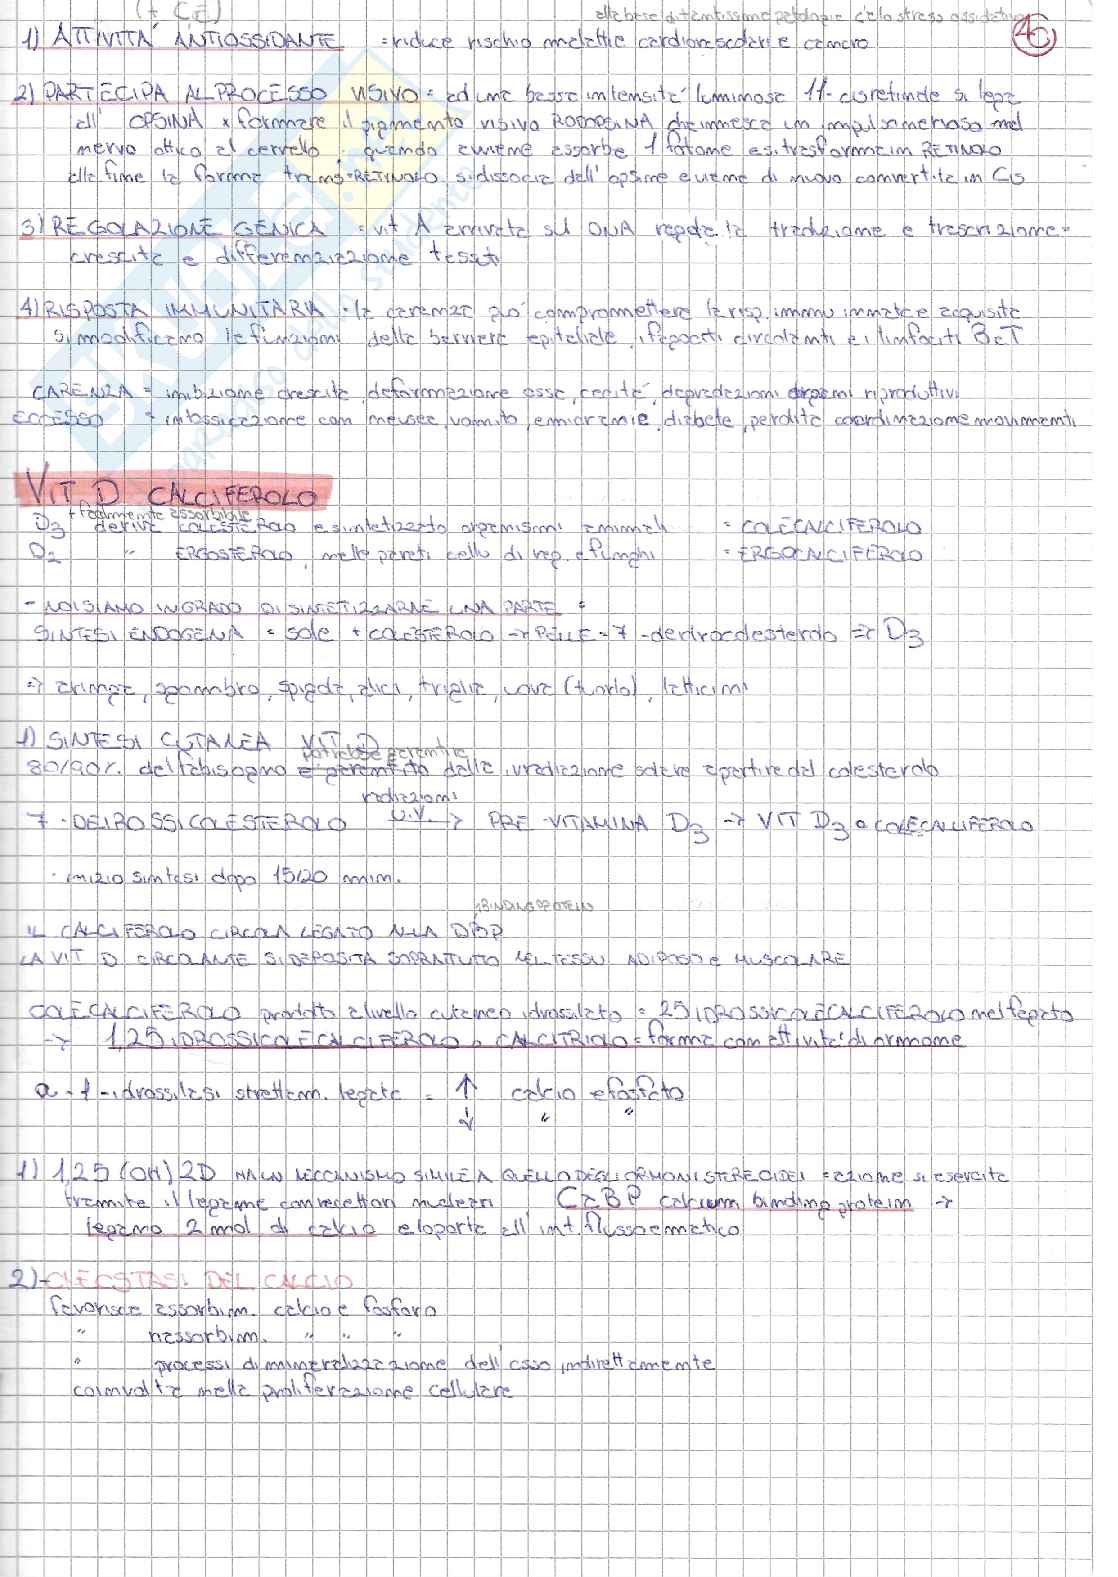 (+ C E) alla base di tantissime patologie c'è lo stress ossidativo
1) ATTIVITÀ ANTIOSSIDANTE = riduce rischio malattie cardiovascolari e cancro
2) PARTECIPA AL PROCESSO VISIVO = ad una bassa intensità luminosa 11-cisretinale si lega
all' OPSINA x formare il pigmento visivo RODOPSINA che innesca un impulso nervoso nel
nervo ottico al cervello. quando avviene assorbe 1 fotone e si trasforma in RETINOLO
alla fine la forma trans-RETINOLO si dissocia dall'opsina e viene di nuovo convertita in Cis
3) REGOLAZIONE GENICA = vit A arrivata sul DNA regola la traduzione e trascrizione =
crescita e differenziazione tessuti
4) RISPOSTA IMMUNITARIA = la carenza può compromettere la risp. immu innata e acquisita
si modificano le funzioni delle barriere epiteliale, i fagociti circolanti e i linfociti B e T
CARENZA = inibizione crescita, deformazione ossa, cecità, degradazioni organi riproduttivi
ECCESSO = intossicazione con nausea, vomito, emicranie, diabete, perdita coordinazione movimenti
VIT D CALCIFEROLO
+ facilmente assorbibile
D3 deriva COLESTEROLO e sintetizzato organismi animali = COLECALCIFEROLO
D2 " ERGOSTEROLO, nelle pareti cellu di veg. e funghi = ERGOCALCIFEROLO
- NOI SIAMO IN GRADO DI SINTETIZZARNE UNA PARTE =
SINTESI ENDOGENA = sole + COLESTEROLO → PELLE = 7-deidrocolesterolo ⇒ D3
⇒ aringa, sgombro, spigola, alici, triglia, uova (tuorlo), latticini
1) SINTESI CUTANEA VIT D
potrebbe garantire
80/90%. del fabisogno è garantito dalla irradiazione solare a partire dal colesterolo
radiazioni
7-DEIROSSICOLESTEROLO U.V. → PRE VITAMINA D3 → VIT D3 o COLECALCIFEROLO
· inizio sintesi dopo 15/20 min.
BINDING PROTEIN
IL CALCIFEROLO CIRCOLA LEGATO ALLA DBP
LA VIT D CIRCOLANTE SI DEPOSITA SOPRATTUTTO NEI TESSUTI ADIPOSO e MUSCOLARE
COLECALCIFEROLO prodotto a livello cutaneo idrossilato = 25 IDROSSICOLECALCIFEROLO nel fegato
→ 1,25 IDROSSICOLECALCIFEROLO o CALCITRIOLO = forma con attività di ormone
α-1-idrossilasi strettam. legata = ↑ calcio e fosfato
↓ " "
1) 1,25 (OH) 2D HA UN MECCANISMO SIMILE A QUELLO DEGLI ORMONI STEREOIDEI = azione si esercita
tramite il legame con recettori nucleari CaBP calcium binding protein →
legano 2 mol di calcio e lo porta all'int. flusso ematico
2)- OMEOSTASI DEL CALCIO
favorisce assorbim. calcio e fosforo
" riassorbim. " " "
" processi di mineralizzazione dell'osso, indirettamente
coinvolta nella proliferazione cellulare